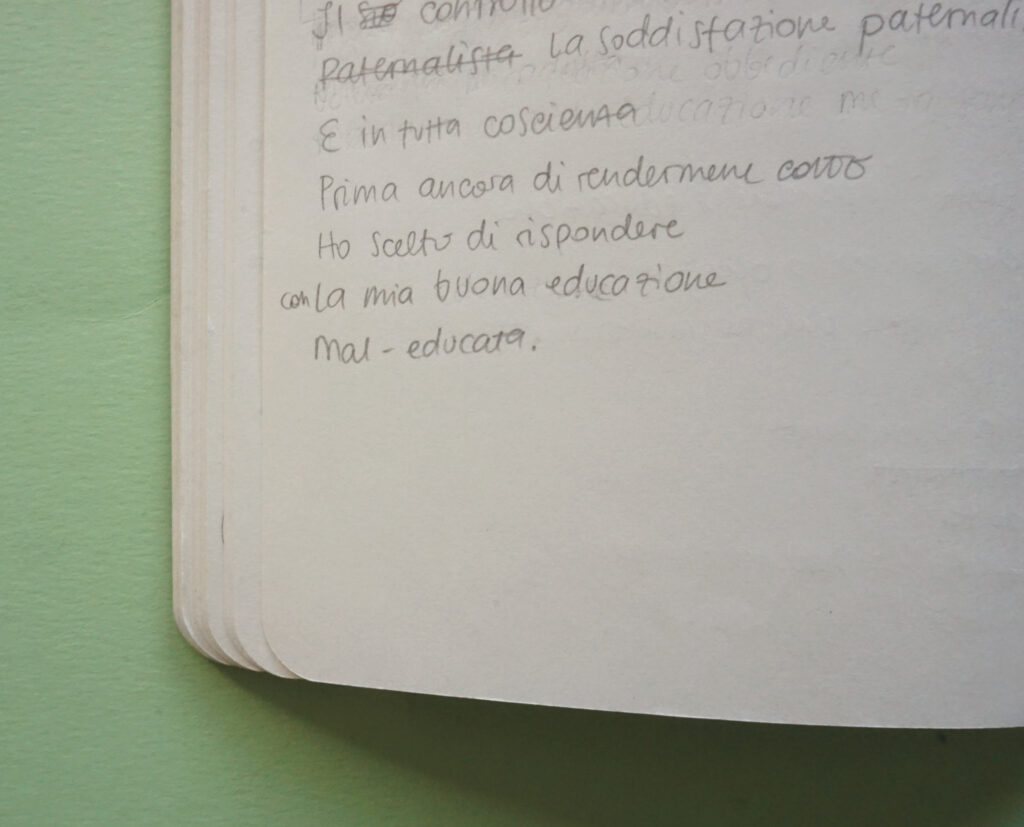 controllo
Paternalista La soddisfazione paternali
E in tutta coscienza
Prima ancora di rendermene conto
Ho scelto di rispondere
con La mia buona educazione
Mal-educata.